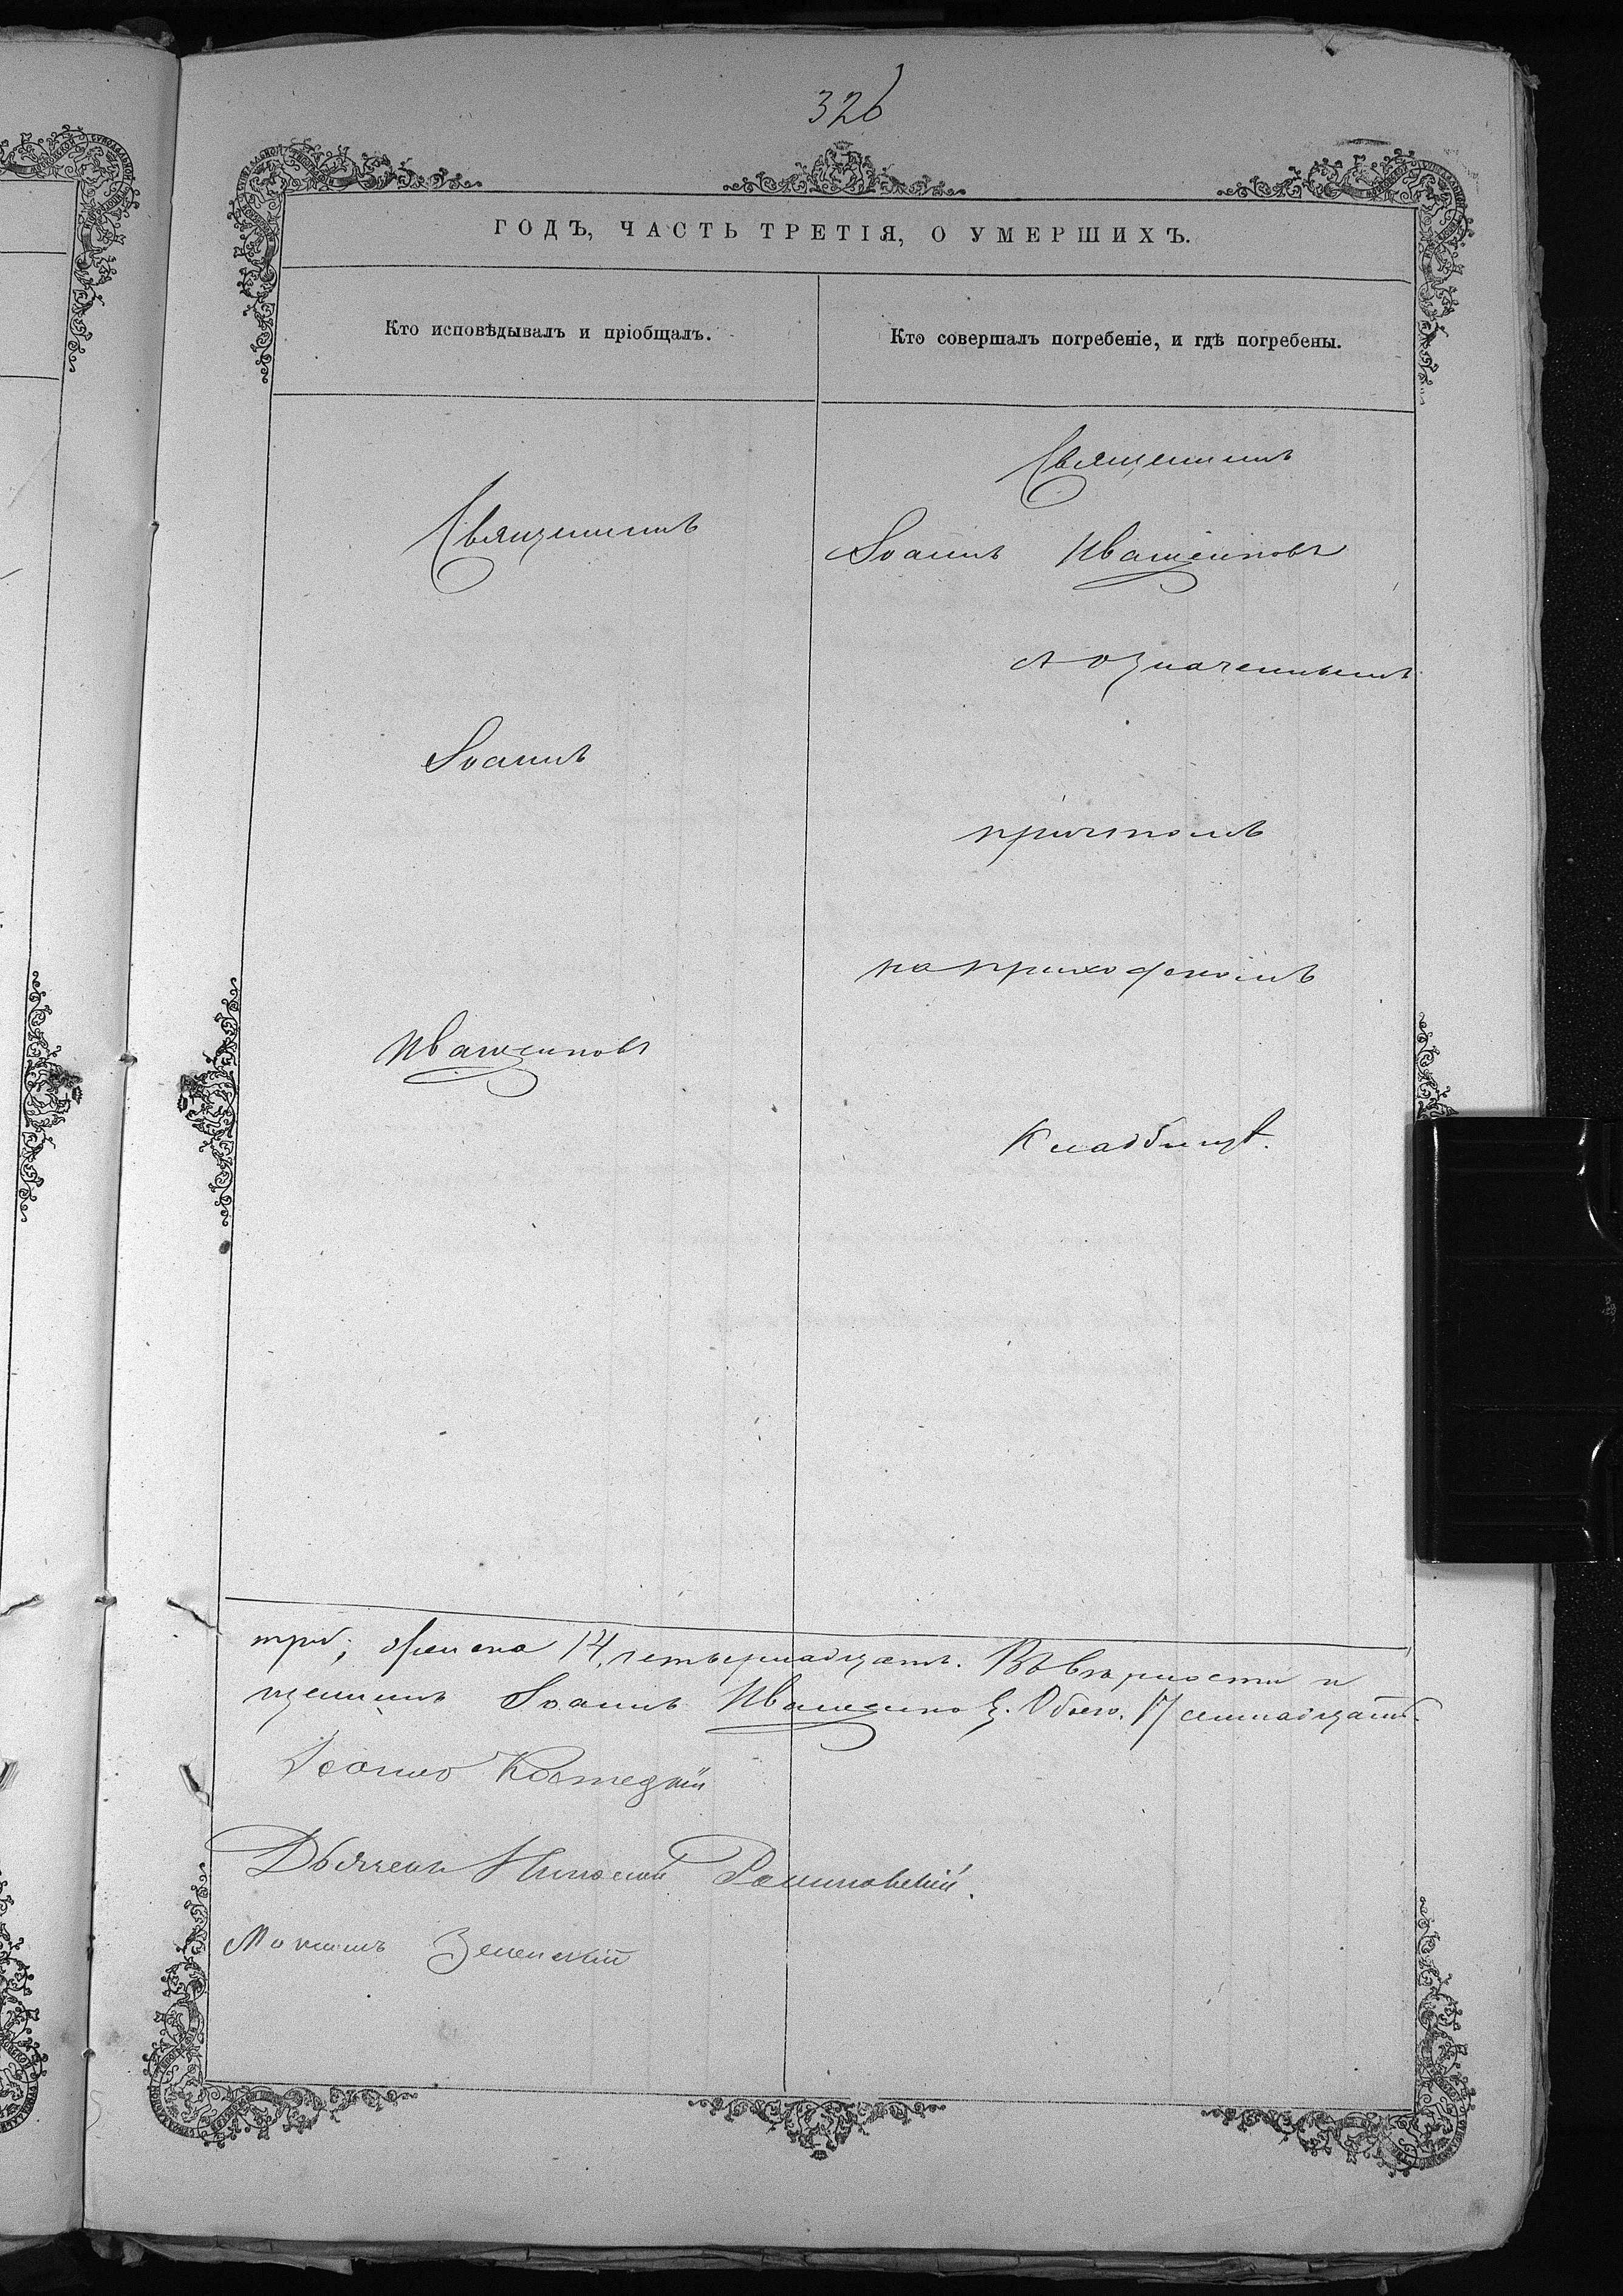 326
ГОДЪ, ЧАСТЬ ТРЕТІЯ, О УМЕРШИХЪ.
Кто исповѣдывалъ и пріобщалъ.
Кто совершалъ погребеніе, и гдѣ погребены.
Священникъ
Іоаннъ
Иващенковъ
Священникъ
Іоаннъ Иващенковъ
съ означеннымъ
причтомъ
на приходскомъ
Кладбищѣ.
женска 14, четырнадцать. Въ вѣрности и
щенникъ Іоаннъ Обоего. 17 семнадцать.
Діаконъ
Дьячекъ Николай
Зеленскій